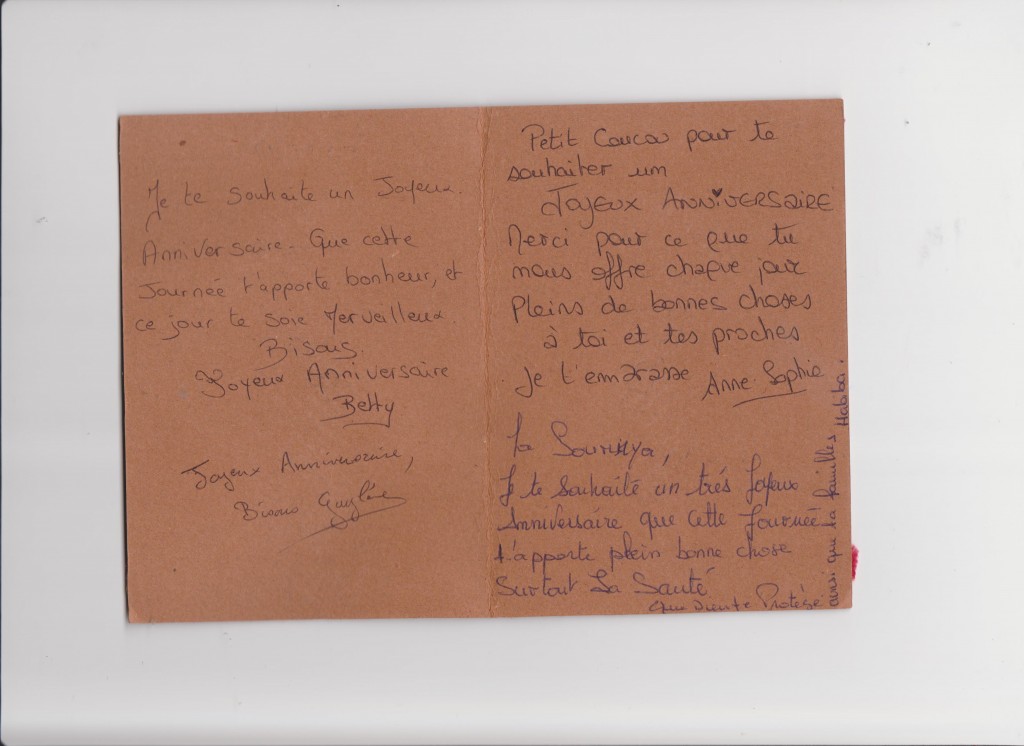 Je te souhaite un Joyeux.
Anniversaire. Que cette
Journée t'apporte bonheur, et
ce jour te soie Merveilleux
Bisous.
Joyeux Anniversaire
Betty
Joyeux Anniversaire,
Bisous Guylène
Petit Coucou pour te
souhaiter um
JOYEUX ANNIVERSAIRE
Merci pour ce que tu
nous offre chaque jour
Pleins de bonnes choses
à toi et tes proches
Je t'embrasse Anne-Sophie
Ja
Je te souhaité un trés Joyeux
Anniversaire que cette Journée
t'apporte plein bonne chose
Surtout La Santé
Que Protège
ainsi que ta familles